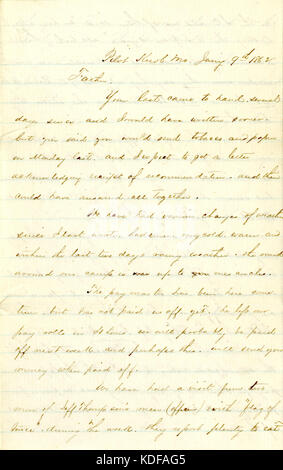 Pilot Knob Mo. Jan'y 9th 1862
Father
Your last came to hand several
days since and I would have written sooner
but you said you would send tobacco and papers
on Monday last and I expect to get a letter
acknowledging receipt of recommendation and then
could have answered all together.
We have had various changes of weather
since I last wrote had snow cold warm and
within the last two days rainy weather. The mud
around our camp is up to
The pay master has been here some
time but has not paid us off yet. he left our
pay rolls in St Louis we will probably be paid
off next week and perhaps this. will send you
money when paid off.
We have had a visit from two
men of Jeff Thompson's men (officers) with "flag of
truce" during the week. they report plenty to eat
alamy stock photo
KDFAG5